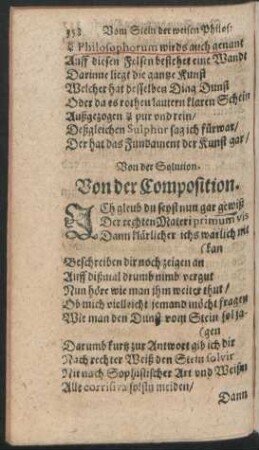 358 Vom Stein der weisen Philos:
☿ Philosophorum wirds auch genant
Auff diesen Felsen bestehet eine Wandt
Darinne liegt die gantze Kunst
Welcher hat desselben Ding Dunst
Oder da es rothen lautern klaren Schein
Außgezogen ☿ pur vnd rein/
Deßgleichen Sulphur sag ich fürwar/
Der hat das Fundament der Kunst gar/
Von der Solution.
Von der Composition.
ICh gleub du seyst nun gar gewiß
Der rechten Materi primum vis
Dann klärlicher ichs warlich nit
(kan
Beschreiben dir noch zeigen an
Auff dißmal drumb nimb vergut
Nun höre wie man ihm weiter thut/
Ob mich vielleicht jemand möcht fragen
Wie man den Dunst vom Stein sol ja-
(gen
Darumb kurtz zur Antwort gib ich dir
Nach rechter Weiß den Stein solvir
Nit nach Sophistischer Art vnd Weisen
Alle corrisiva solstu meiden/
Dann